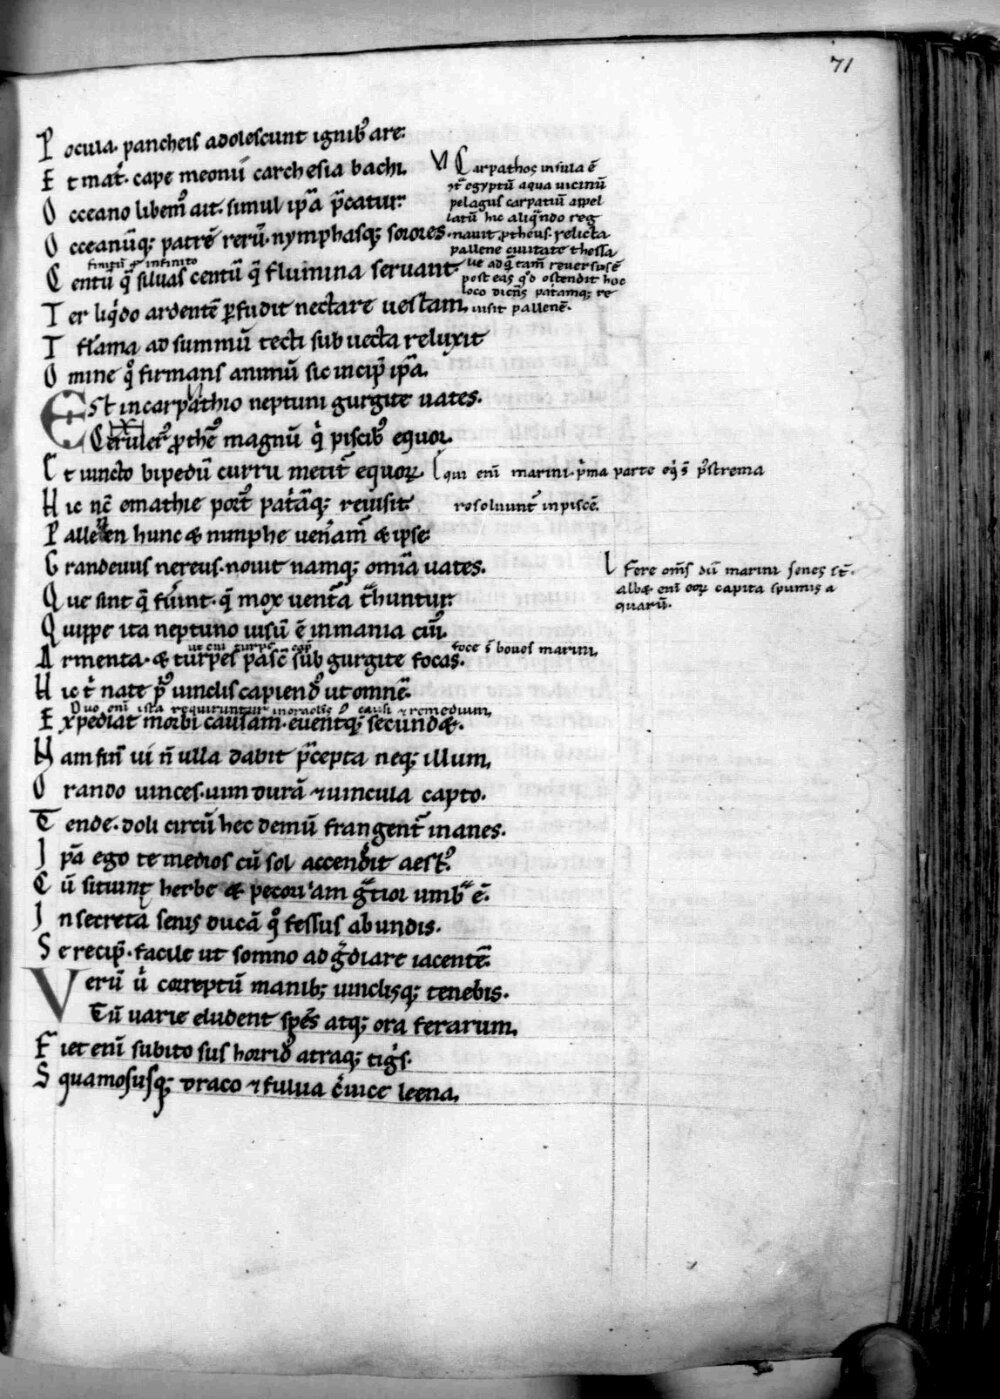 71
P ocula. pancheis adolescunt ignibꝰ are.
E t mat̃. cape meonii carchesia bachi.
O cceano libemꝰ ait. simul ip̃a p̃catur
O cceanũq; patrẽ rerũ. nymphasq; sorores.
finitũ ꝓ infinito
C entũ q̃ siluas centũ q̃ flumina seruant.
T er liq̇do ardentẽ ꝑfudit nectare uestam,
T flãma ad summũ tecti subuecta reluxit
O mine qͦ firmans animũ sic incip̃ ip̃a.
E st incarpathio neptuni gurgite uates.
Ceruleꝰ ꝓtheꝰ magnũ q̇ piscibꝰ equor.
E t iuncto bipedũ curru metit̃ equoꝝ
H ic nc̃ emathie port̃ patⁱãq; reuisit.
P allenen hunc & nimphe uen̾am̃ & ipse.
G randeuus nereus. nouit namq; om̃ia uates.
Q ue sint q̃ fũint. q̃ mox uent̾a t̃huntur.
Q uippe ita neptuno uisũ ẽ inmania cui̾.
A rmenta. & turpes pasc̃ sub gurgite focas.
H ic t̾ nate pⁱꝰ uinclis capiendꝰ ut omnẽ.
Duo eni̾ ista requiruntur causa ⁊ remedium,
E xpediat morbi causam. euentꝰq; secundet.
N am sin̾ ui ñ ulla dabit p̃cepta neq; illum,
O rando uinces. uim durã ⁊ uincula capto.
T ende. doli circũ hec demũ frangent̾ inanes.
I p̃a ego te medios cũ sol accenderit aestꝰ.
C ũ sitiunt herbe & pecori iam g̃tior umb̃ ẽ.
I n secreta senis ducã qͦ fessus ab undis.
S e recip̃. facile ut somno adg̾diare iacentẽ.
V erũ ũ correptũ manibꝫ uinclisq; tenebis.
Tũ uarie eludent sp̃es atq; ora ferarum,
F iet eni̾ subito sus horridꝰ atraq; tigⁱs.
S quamosusq; draco ⁊ fulua c̾uice leena,
Carpathos insula ẽ
c̾ egyptũ cuiꝰ uicinũ
pelagus carpatiũ appel
latũ hic aliq̃ndo reg
nauit ꝓtheus. relicta
pallene ciuitate thessa
lie ad q̃ tam̃ reuersus ẽ
post ea. qͦd ostendit hoc
loco dicẽs patⁱamq; re
uisit pallenẽ.
qui eni̾ marini. pⁱma parte eq̇ s̃ postrema
resoluunt̾ in piscẽ.
Fere om̃s dii marini senes st̃.
albẽ eni̾ eoꝝ capita spumis a
quarũ.
foce s̃ boues marini,